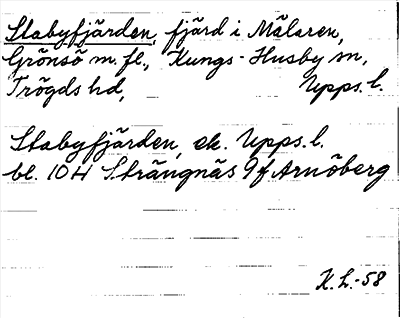 Stabyfjärden, fjärd i Mälaren,
Grönsö m. fl., Kungs-Husby sn,
Trögds hd, Upps. l.
Stabyfjärden, ek. Upps. l.
bl. 104 Strängnäs 9f Arnöberg
K. L. -58